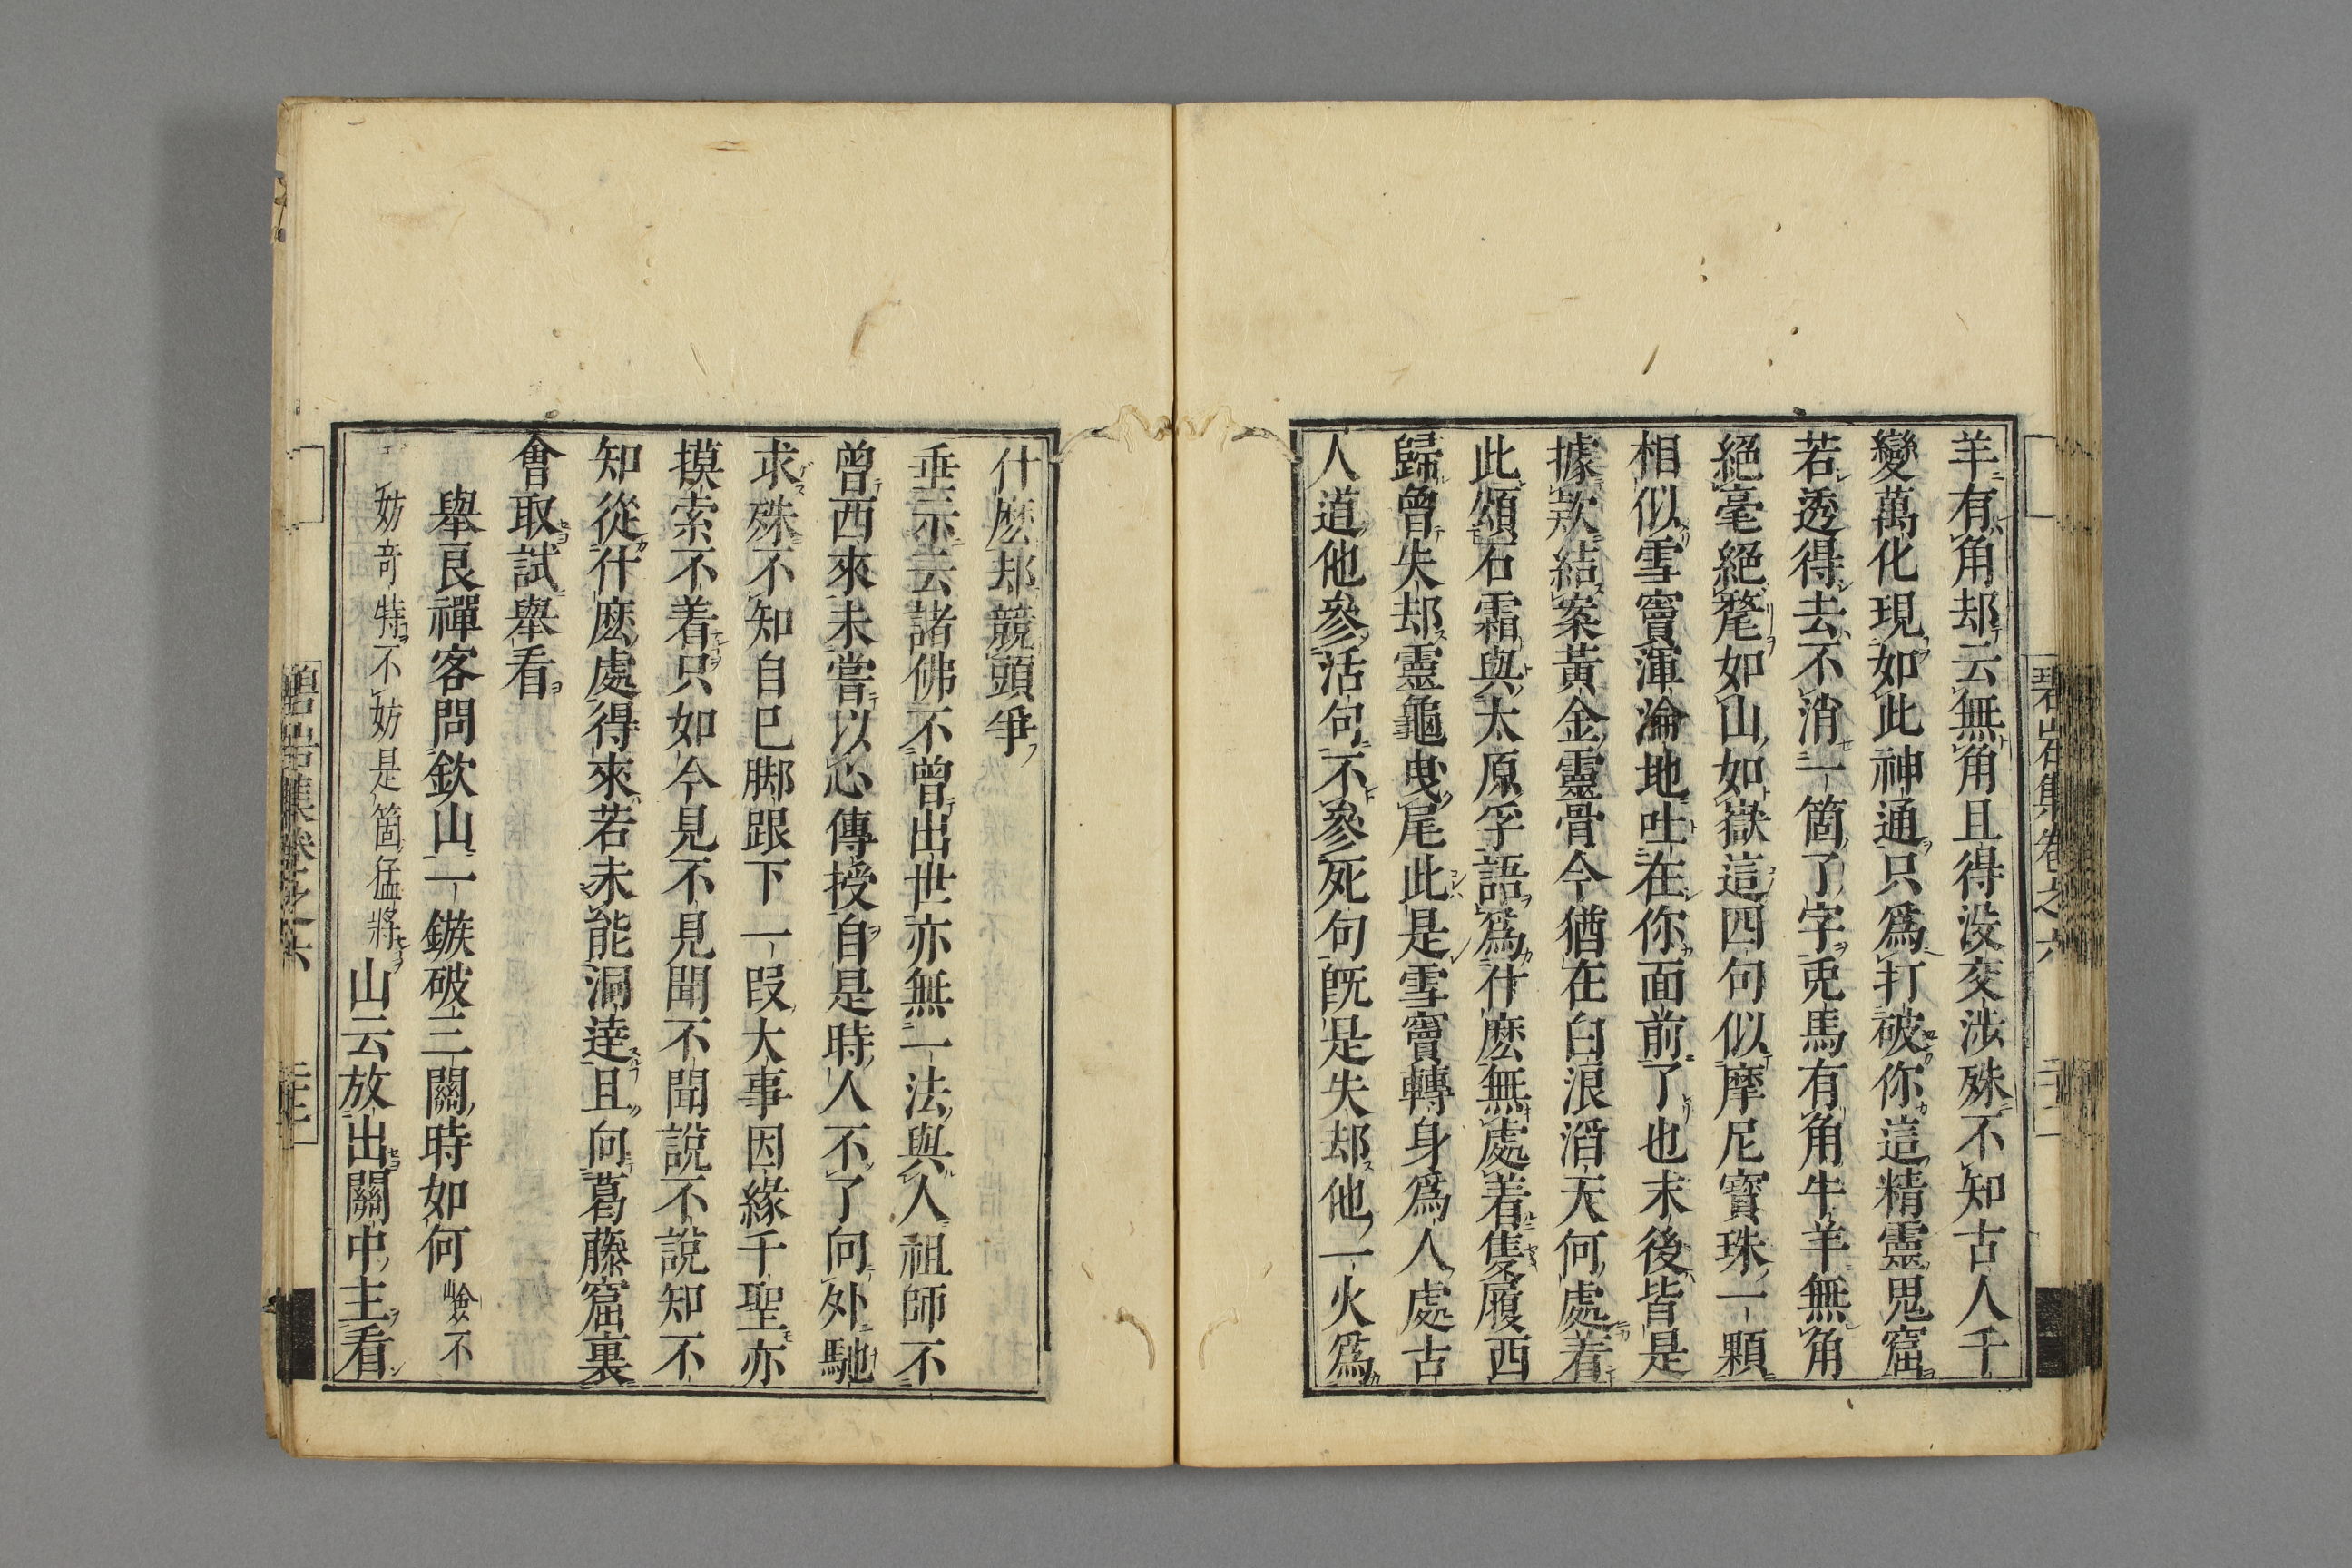 羊有角却云無角且得没交渉殊不知古人千
變萬化現如此神通只爲打破你這精靈鬼窟
若透得去不消一箇了字兎馬有角牛羊無角
絕毫絕氂如山如嶽這四句似摩尼寳珠一顆
相似雪竇渾淪地吐在你面前了也末後皆是
據欵結案黃金靈骨今猶在白浪滔天何處着
此頌石霜與太原孚語爲什麽無處着隻履西
歸曾失却靈龜曳尾此是雪竇轉身爲人處古
人道他參活句不參死句既是失却他一火爲
什麽却競頭爭
垂示云諸佛不曾出世亦無一法與人祖師不
曾西來未嘗以心傳授自是時人不了向外馳
求殊不知自巳脚跟下一叚大事因緣千聖亦
摸索不着只如今見不見聞不聞說不說知不
知從什麽處得來若未能洞逹且向葛藤窟裏
會取試舉看
舉良禪客問欽山一鏃破三關時如何嶮不
妨奇特不妨是箇猛將山云放出關中主看
碧岩集卷之六